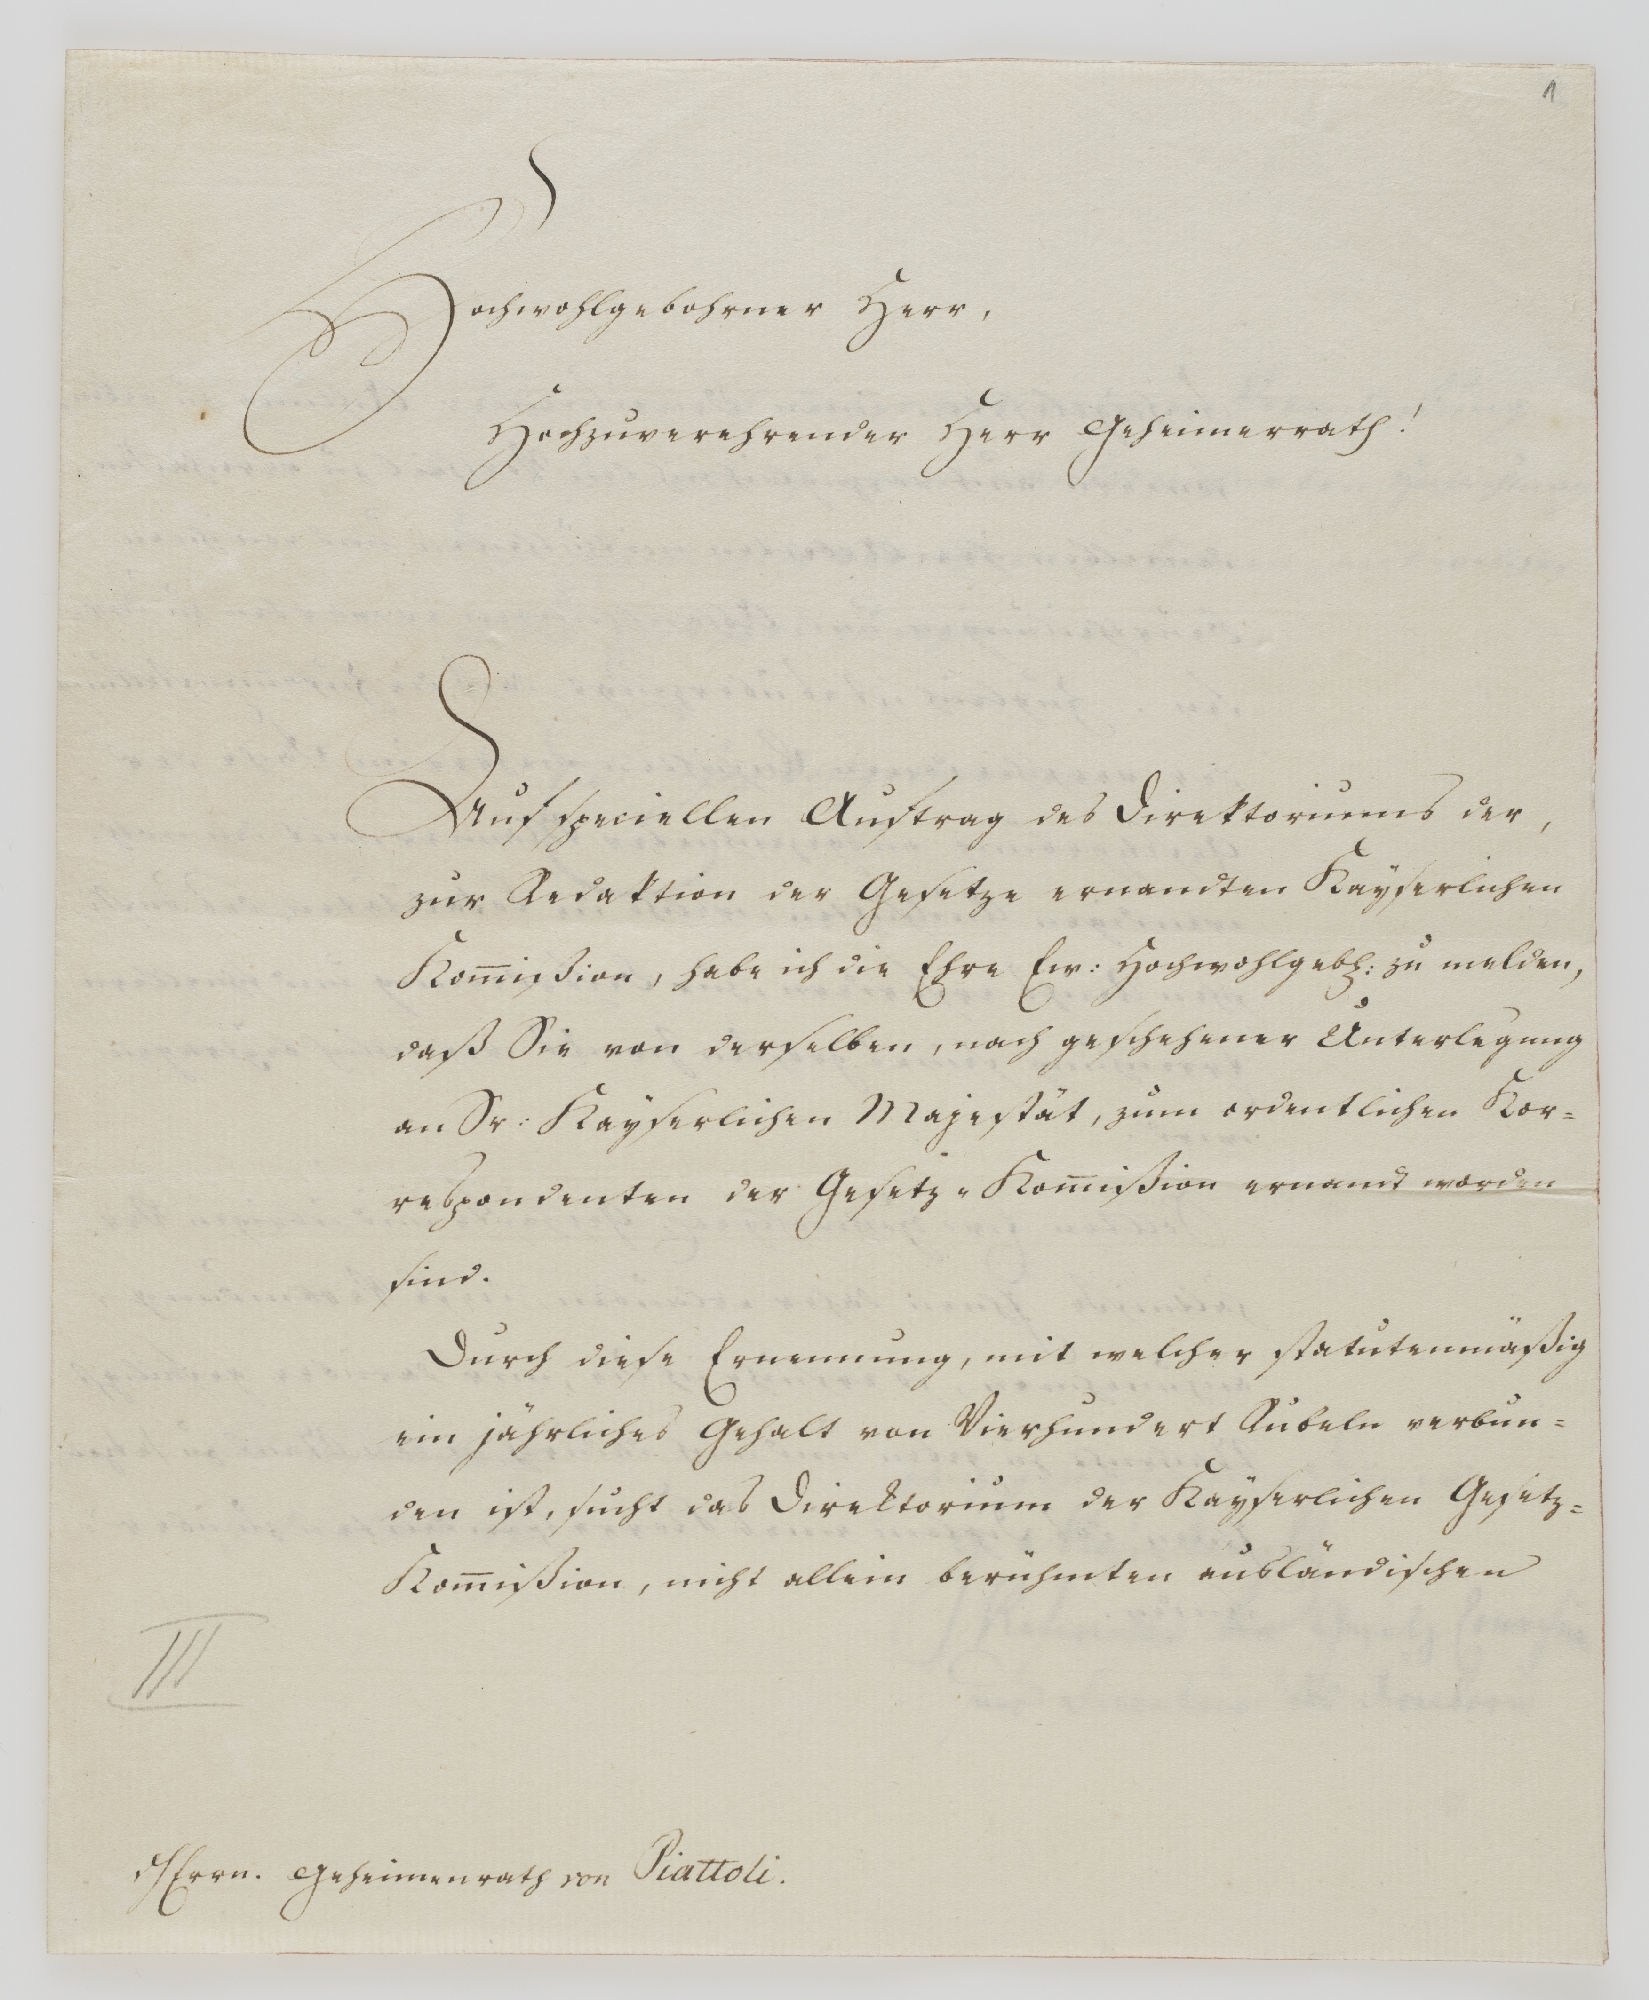 1
Hochwohlgebohrner Herr,
Hochzuverehrender Herr Geheimerrath!
Auf speciellen Auftrag des Direktoriums der,
zur Redaktion der Gesetze ernandten Kayserlichen
Kom̅ißion, habe ich die Ehre Ew: Hochwohlgeb: zu melden,
daß Sie von derselben, nach geschehener Unterlegung
an Sr: Kayserlichen Majestät, zum ordentlichen Kor=
respondenten der Gesetz=Kom̅ißion ernandt worden
sind.
Durch diese Ernennung, mit welcher statutenmäßig
ein jährliches Gehalt von Vierhundert Rubeln verbun=
den ist, sucht das Direktorium der Kayserlichen Gesetz=
Kom̅ißion, nicht allein berühmten ausländischen
III
Geheimenrath von Piattoli.